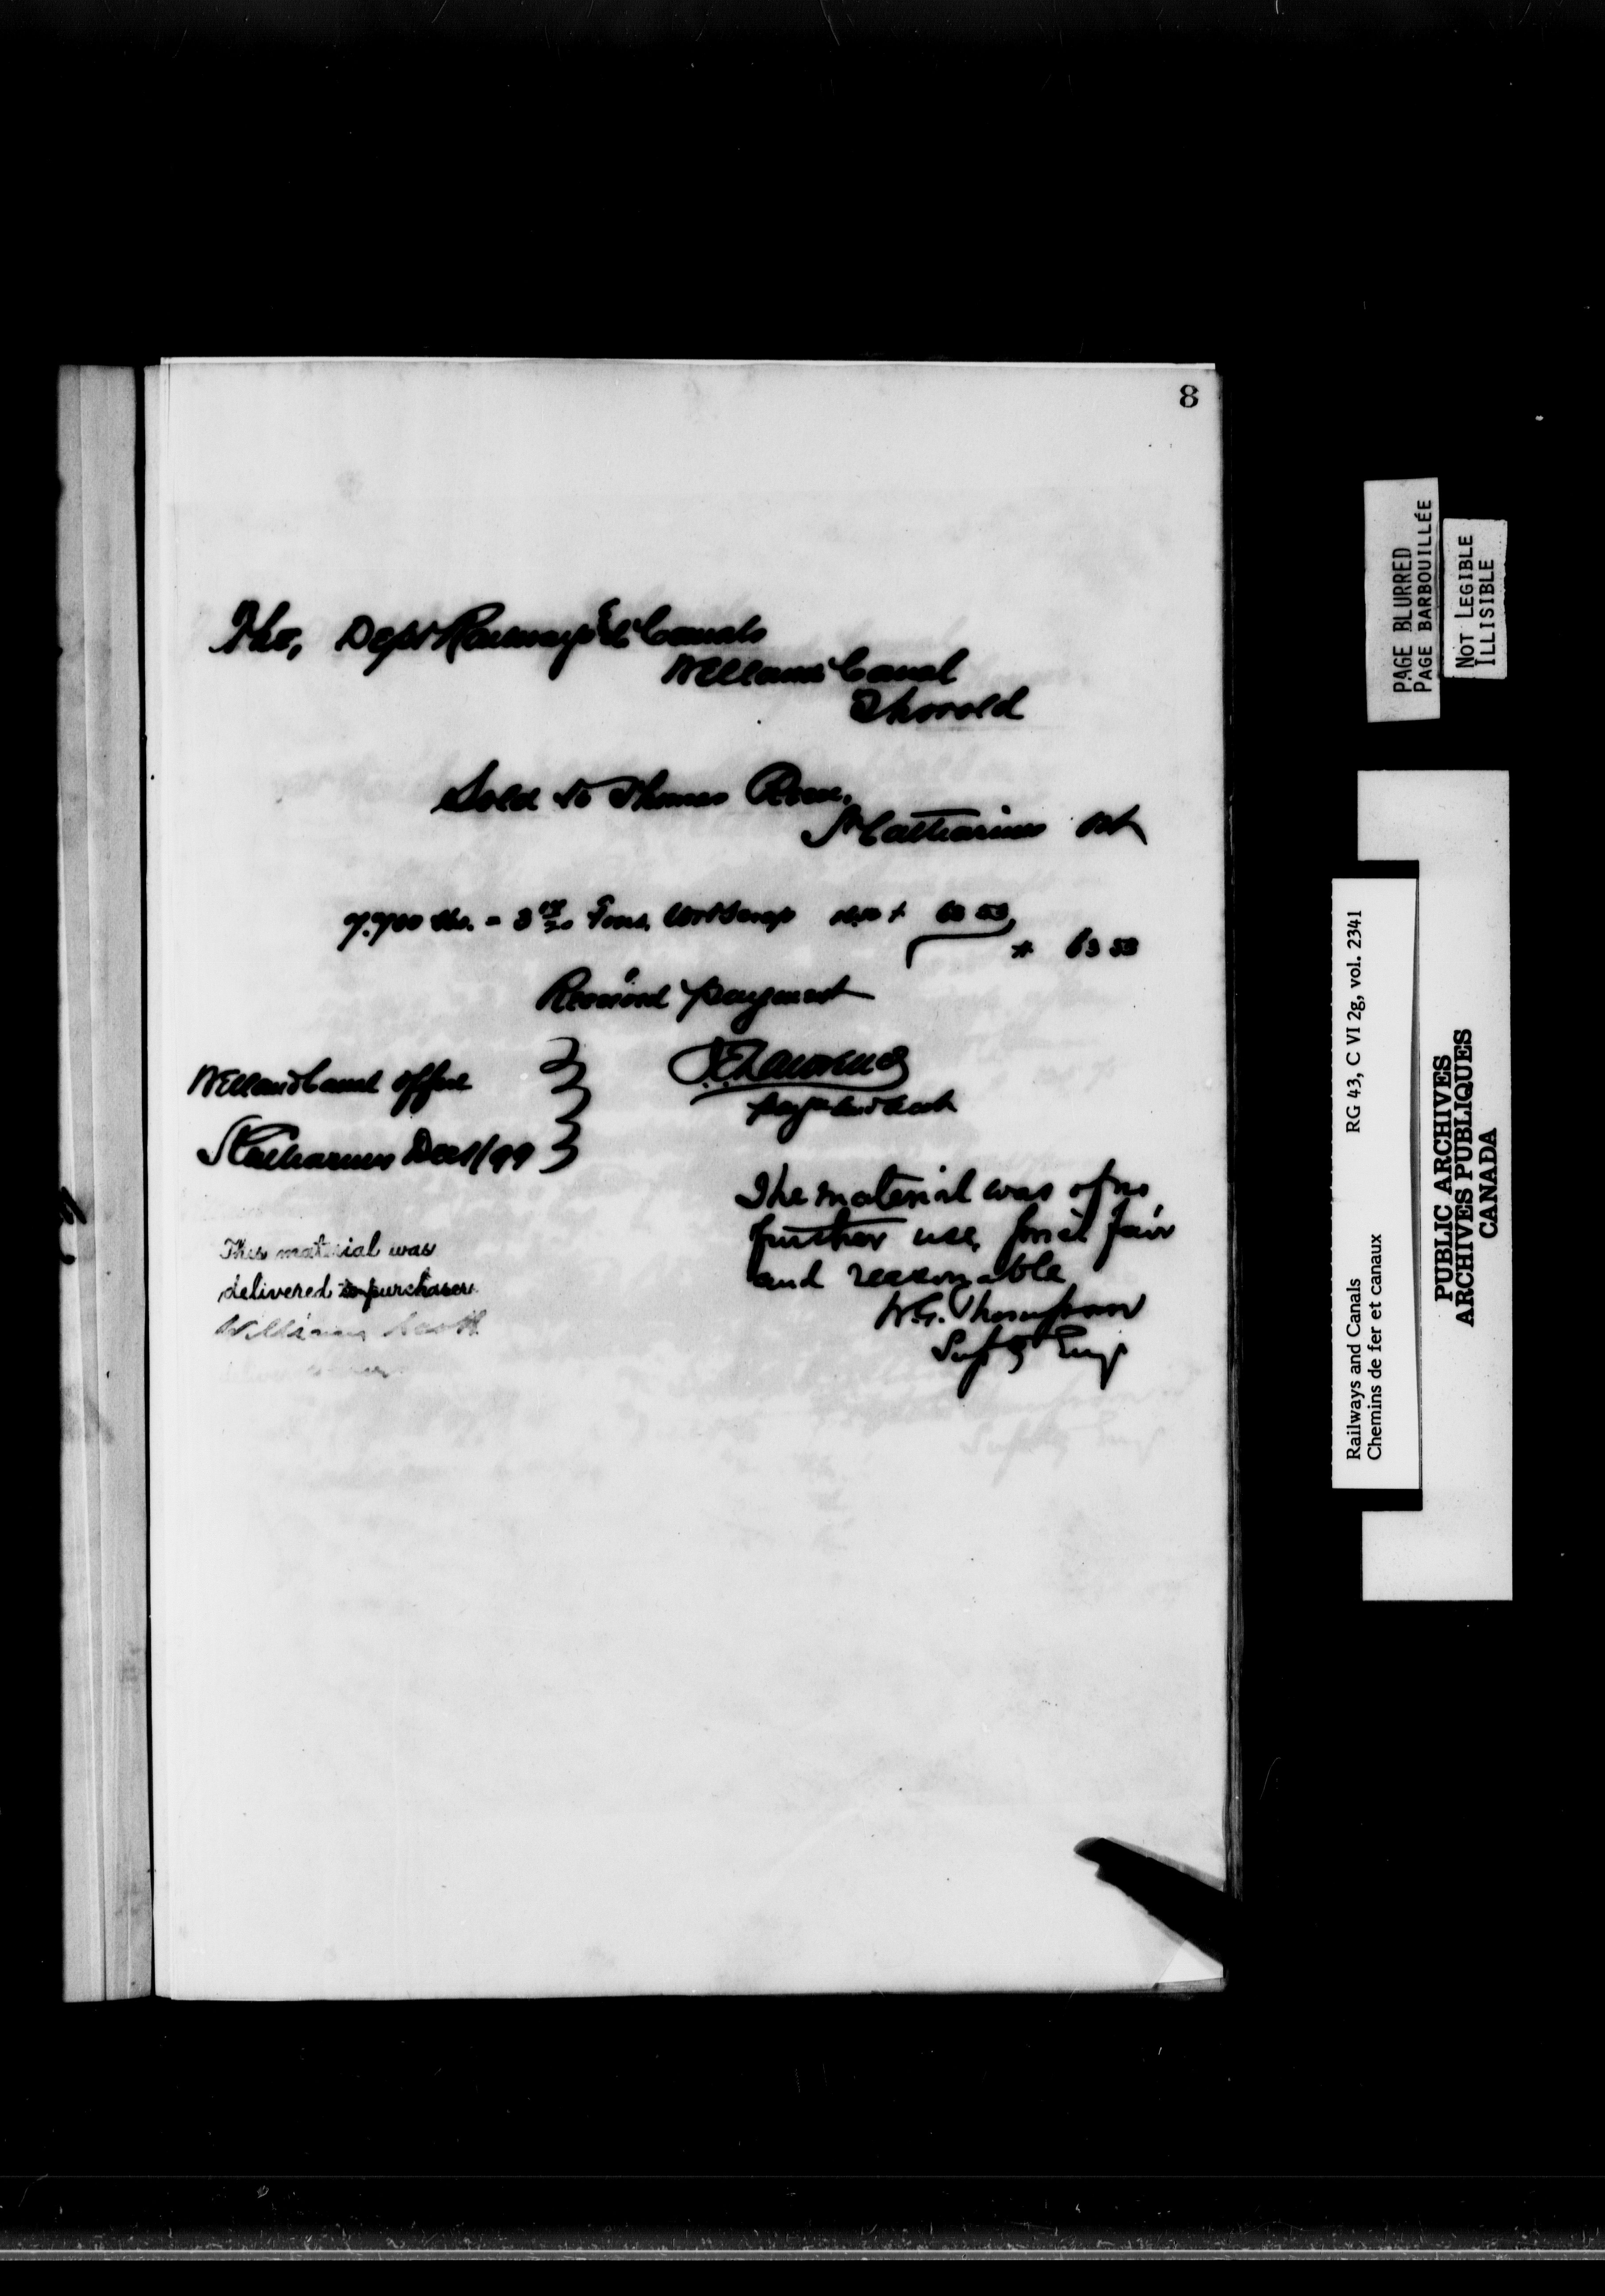 8
The, Dept Railways & Canals
Welland Canal
Thorold
Sold to Thomas
St Catharines Ont
7,700 lbs. = 3 17/20 Tons, Scrap 63 53
$ 63 53
Received payment
Welland Canal Office
St Catharines Dec 1/99
The material was of no
further use, price fair
and reasonable
W.G. Thompson
Supt Eng
This material was
delivered to purchaser
William Scott
PAGE BLURRED
PAGE BARBOUILLÉE
NOT LEGIBLE
ILLISIBLE
Railways and Canals RG 43, C VI 2g, vol. 2341
Chemins de fer et canaux
PUBLIC ARCHIVES
ARCHIVES PUBLIQUES
CANADA